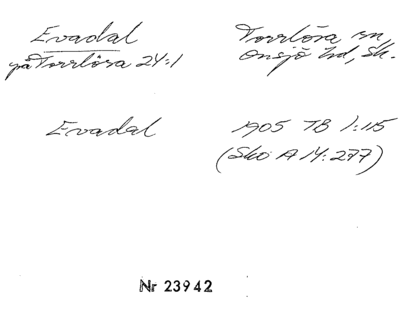 Evadal
på Torrlösa 24:1
Torrlösa sn,
Onsjö hd, Sk.
Evadal
1905 TB 1:115
(Sko A 14:277)
Nr 23942